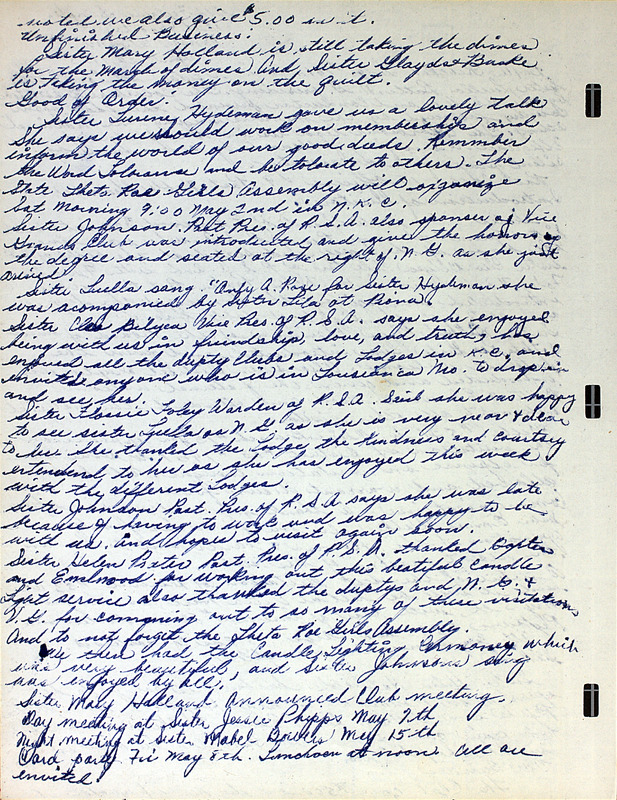 noted we also give $5.00 on it.
Unfinished Business:
Sister Mary Holland is still taking the dimes
for the March of dimes And Sister Glayds Buske
is Taking the money on the quilt.
Good of Order.
Sister Hydeman gave us a lovely talk
She says we should work on membership and
inform the world of our good deeds. Remmber
the Word Tolorance and be tolorate to others. The
State Theta Roe Girls Assembly will organize
Sat Morning 9:00 May 2nd in N.K.C.
Sister Johnson Past Pres. of R.S.A. also sponser of Vice
Grands Club was introducted and given the honors of
the degree and seated at the right of N.G. as she just
arived.
Sister Luella sang "Only A Rose for Sister Hydeman she
was acompanied by Sister Lila at Piona.
Sister Bilyea Vice Pres. of R.S.A. says she enjoyed
being with us in friendship, love, and truth, has
enjoyed all the duptys Clubs and Lodges in K.C. and
invited anyone who is in Lousianica Mo. to drop in
and see her.
Sister Flossie Foley Warden of R.S.A. Said she was happy
to see sister Luella as N.G. as she is very near & dear
to her She thanked the Lodge the Kindness and Courtsy
entendend to her as she has enjoyed this week
with the different Lodges.
Sister Johnson Past. Pres. of R.S.A says she was late
because of having to work and was happy to be
with us. And hopes to visit again soon.
Sister Helen Past. Pres. of R.S.A. thanked
and Emlwood for working out this beatiful Candle
Light service also thanked the duptys and N.G. &
V.G. for comming out to so many of these visitations
And to not forget the Theta Roe Girls Assembly.
We then had the Candle Lighting Cermoney which
was very beautiful, and Sister Johnsons song
was enjoyed by all.
Sister Mary Holland Announced Club meeting.
Day meeting at Sister Jessie Phipps May 7th
Night meeting at Sister Mabel May 15th
Card party Fri May 8th. Luncheon at noon. all are
envited.